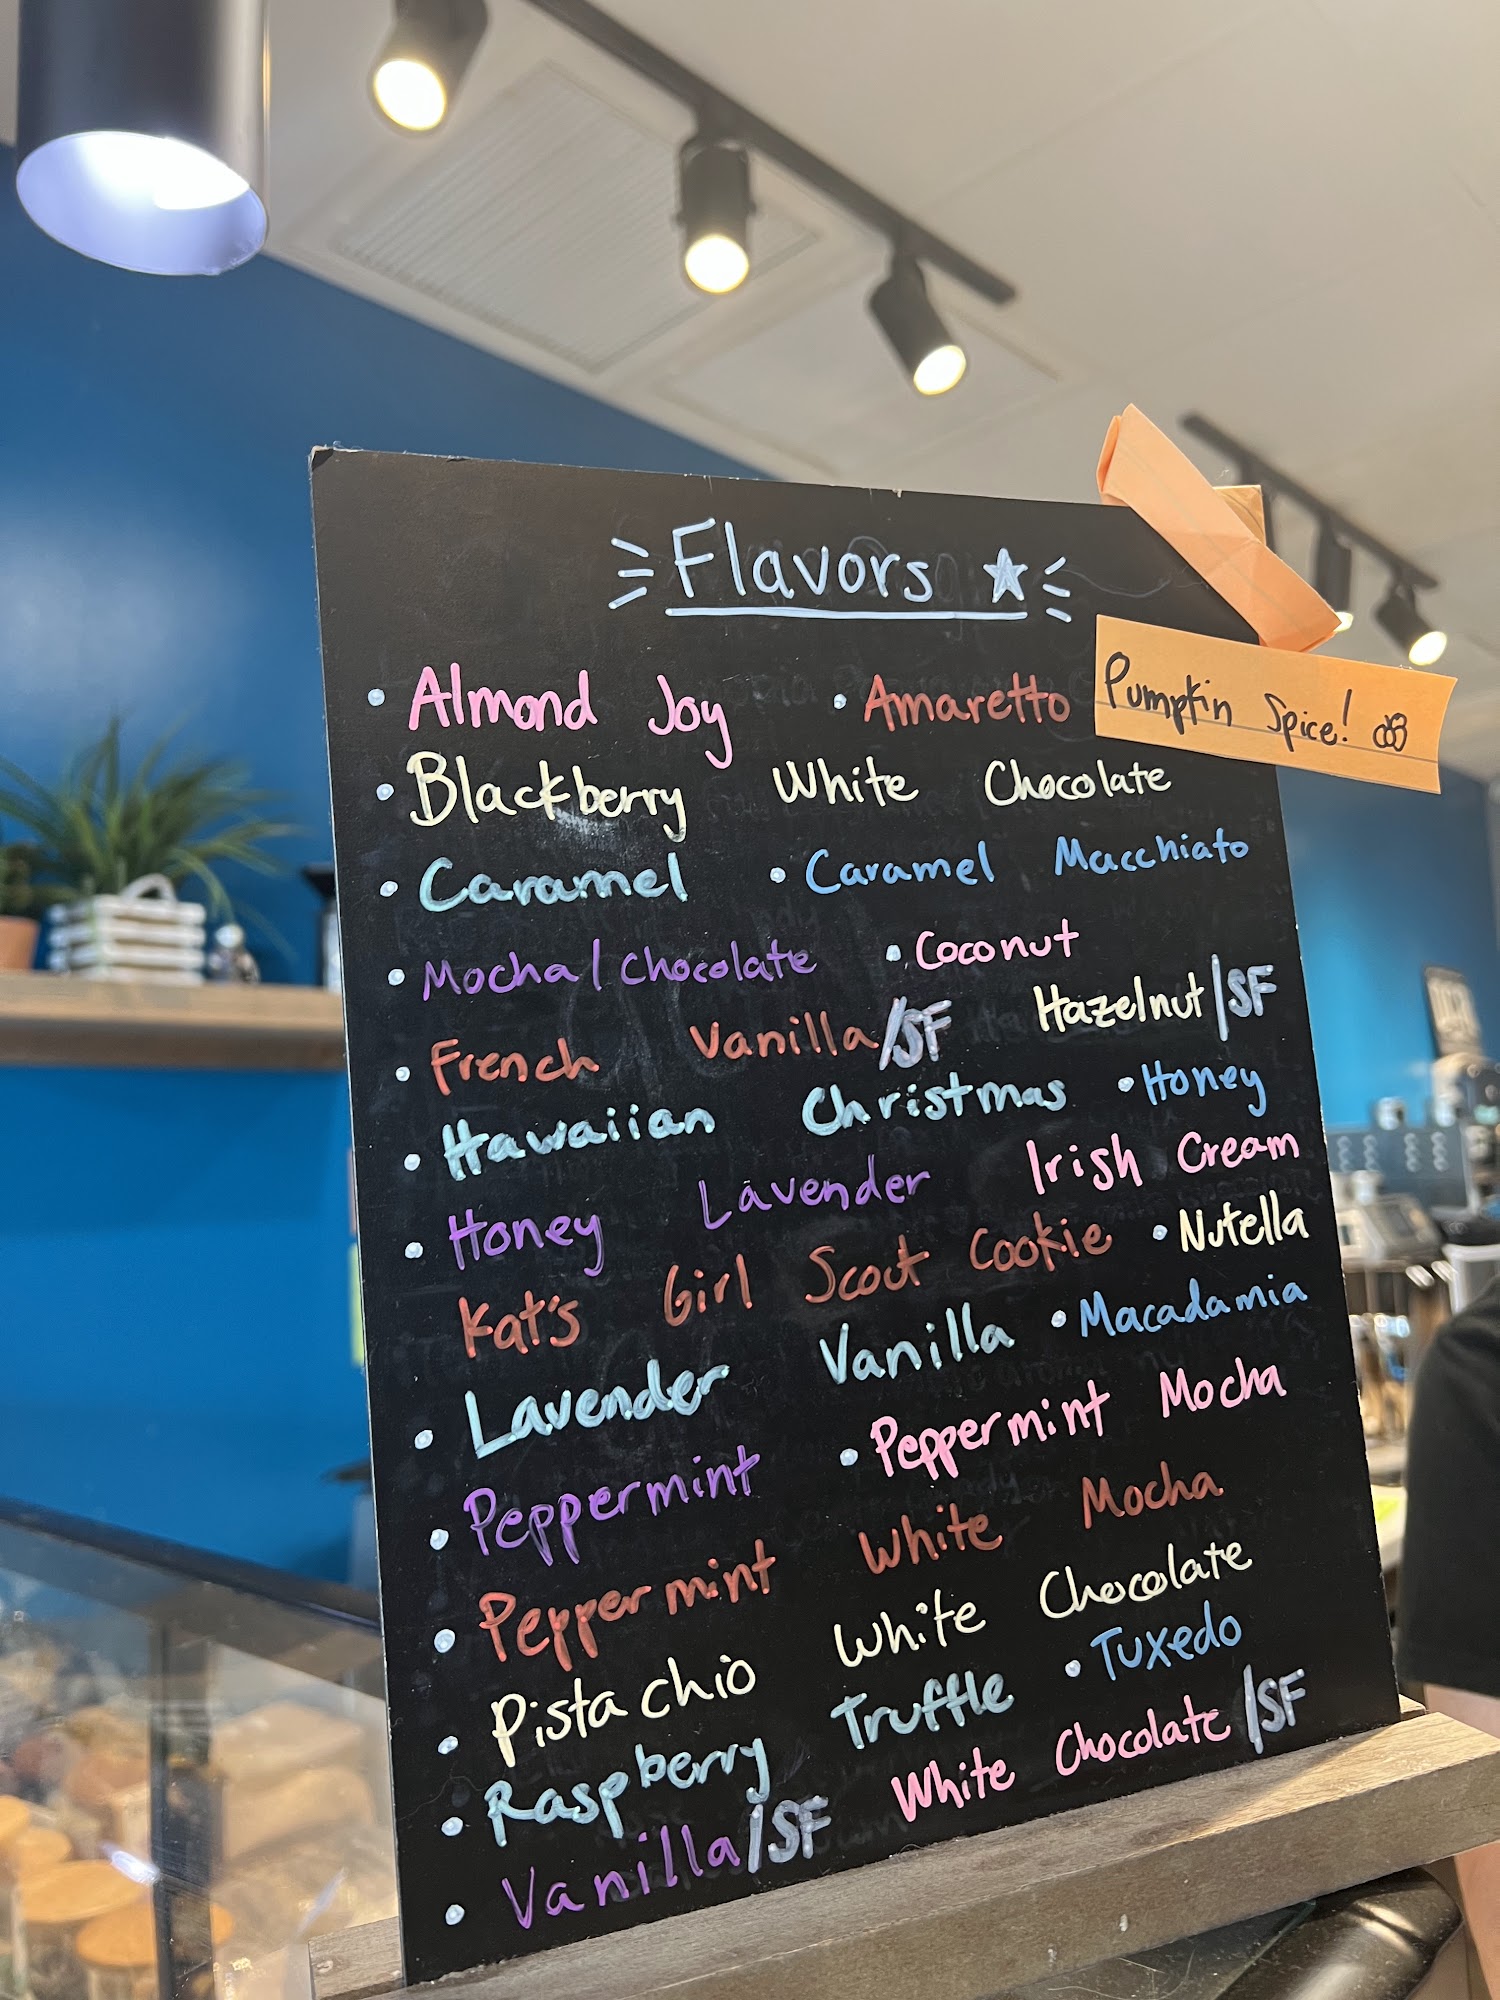 Flavors
• Almond Joy • Amaretto
Pumpkin Spice!
• Blackberry White Chocolate
• Caramel • Caramel Macchiato
• Mocha/Chocolate • Coconut
• French Vanilla/SF Hazelnut/SF
• Hawaiian Christmas • Honey
• Honey Lavender Irish Cream
Kat's Girl Scout Cookie • Nutella
• Lavender Vanilla • Macadamia
• Peppermint • Peppermint Mocha
• Peppermint White Mocha
• Pistachio White Chocolate
• Raspberry Truffle • Tuxedo
• Vanilla/SF White Chocolate/SF